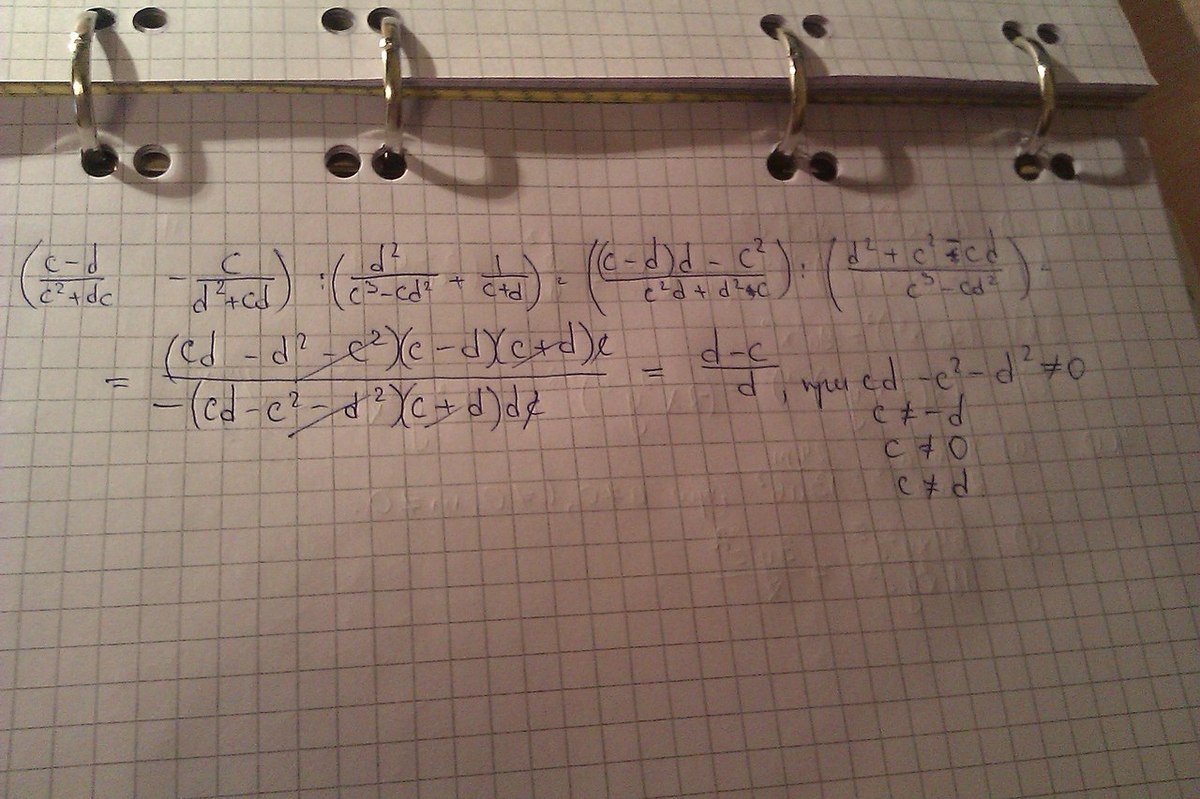 (c-d/c²+dc - c/d²+cd) : (d²/c³-cd² + 1/c+d) = ((c-d)d - c²/c²d + d²c) : (d² + c² - cd/c³-cd²) =
= (cd - d² - c²)(c-d)(c+d)c/-(cd-c²-d²)(c+d)dc = d-c/d, при cd -c²-d² ≠ 0
c ≠ -d
c ≠ 0
c ≠ d